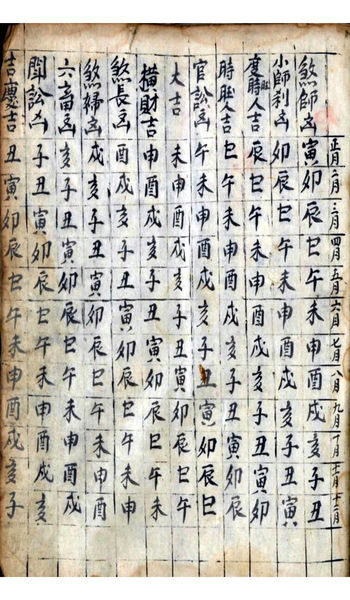 正月二月三月四月五月六月七月八月九月十月十一月十二月
煞師凶寅卯辰巳午未申酉戌亥子丑
小師刹凶卯辰巳午未申酉戌亥子丑寅
時人吉辰巳午未申酉戌亥子丑寅卯
時人吉巳午未申酉戌亥子丑寅卯辰
官訟凶午未申酉戌亥子丑寅卯辰巳
大吉未申酉戌亥子丑寅卯辰巳午
橫財吉申酉戌亥子丑寅卯辰巳午未
煞長凶酉戌亥子丑寅卯辰巳午未申
煞婦凶戌亥子丑寅卯辰巳午未申酉
六畜凶亥子丑寅卯辰巳午未申酉戌
聞訟凶子丑寅卯辰巳午未申酉戌亥
吉慶吉丑寅卯辰巳午未申酉戌亥子